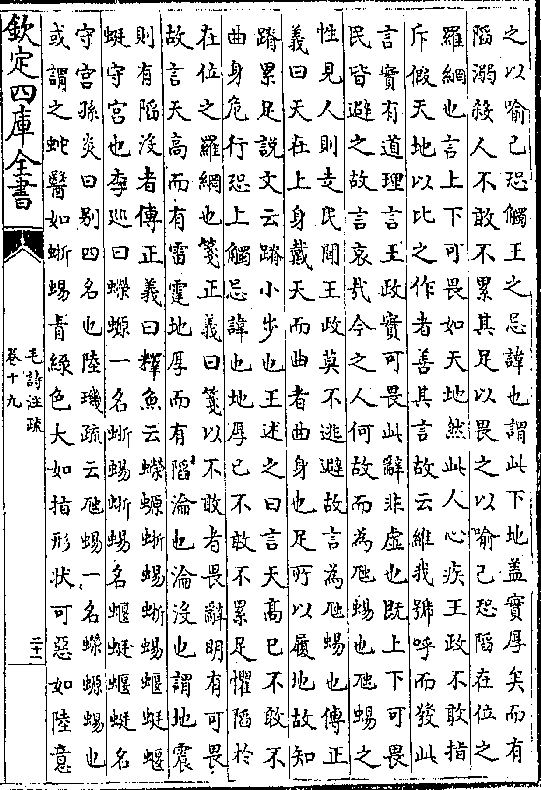 之以喻己恐觸王之忌諱也謂此下地蓋實厚矣而有
陷溺殺人不敢不累其足以畏之以喻己恐陷在位之
羅網也言上下可畏如天地然此人心疾王政不敢指
斥假天地以比之作者善其言故云維我號呼而發此
言實有道理言王政實可畏此辭非虛也既上下可畏
民皆避之故言哀哉今之人何故而為虺蜴也虺蜴之
性見人則走民聞王政莫不逃避故言為虺蜴也傳正
義曰天在上身戴天而曲者曲身也足所以履地故知
蹐累足說文云蹐小步也王述之曰言天高己不敢不
曲身危行恐上觸忌諱也地厚己不敢不累足懼陷於
在位之羅網也箋正義曰箋以不敢者畏辭明有可畏
故言天高而有雷霆地厚而有陷淪也淪沒也謂地震
則有陷沒者傳正義曰釋魚云蠑螈蜥蜴蜥蜴蝘蜓蝘
蜓守宮也李巡曰蠑螈一名蜥蜴蜥蜴名蝘蜓蝘蜓名
守宮孫炎曰別四名也陸璣疏云虺蜴一名蠑螈蜴也
或謂之虵醫如蜥蜴青綠色大如指形狀可惡如陸意
欽定四庫全書
毛詩注疏
卷十九
二十一